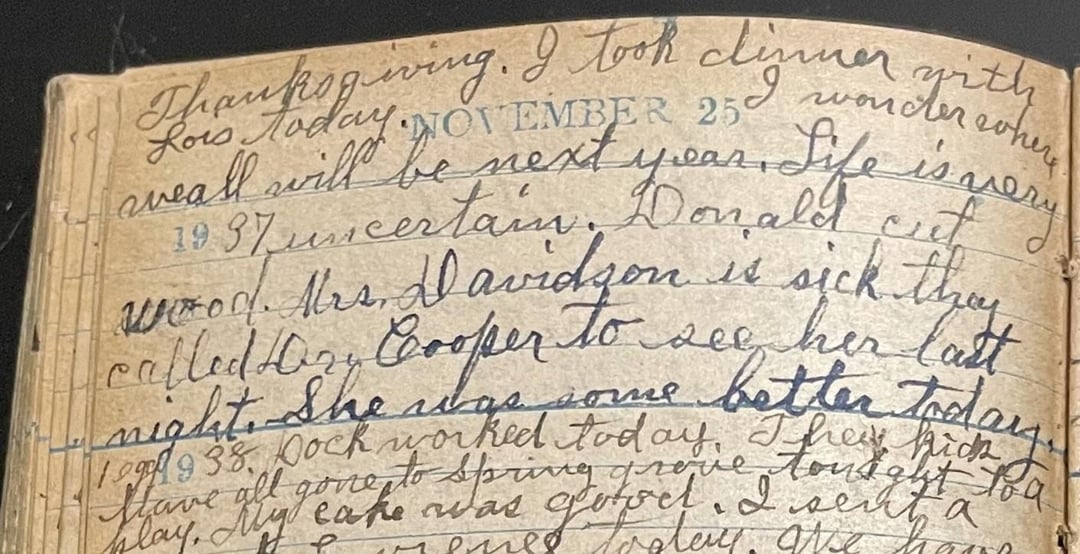 Thanksgiving. I took dinner with
Lois today. I wonder where
NOVEMBER 25
we all will be next year. Life is very
1937 uncertain. Donald cut
wood. Mrs. Davidson is sick they
called Dr. Cooper to see her last
night. She was some better today.
1938. Dock worked today. They
Have all gone to Spring grove tonight to a
play. My cake was good. I sent a
today. We have